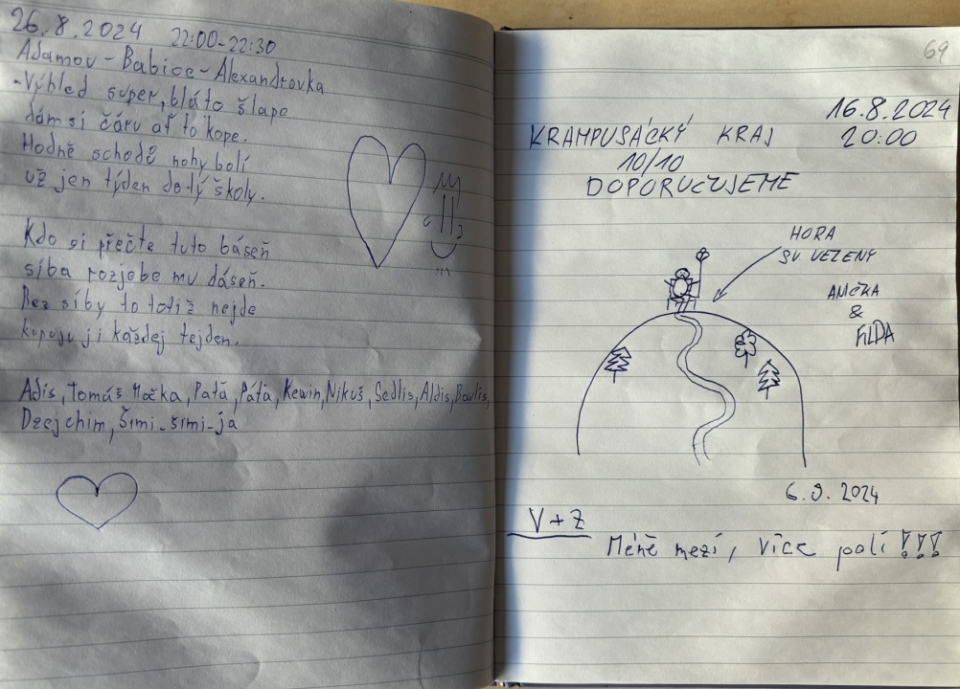 26.8.2024 22:00-22:30
Adamov - Babice - Alexandrovka
-Výhled super, bláto šlapo
dám si čáru ať to kope.
Hodně schodů nohy bolí
už jen týden do tý školy.
Kdo si přečte tuto báseň
síba rozjebe mu dáseň.
Bez síby to totiž nejde
kupuju ji každej tejden.
Adis, Tomáš Hočka, Paťa, Páťa, Kewin, Nikuš, Sedlis, Aldis,
Dzejchim, Šimi-šimi-ja
69
16.8.2024
KRAMPUSÁCKÝ KRAJ 20:00
10/10
DOPORUČUJEME
HORA
SV
ANIČKA
&
6.9.2024
V + Z
Méně mezí, více polí !!!